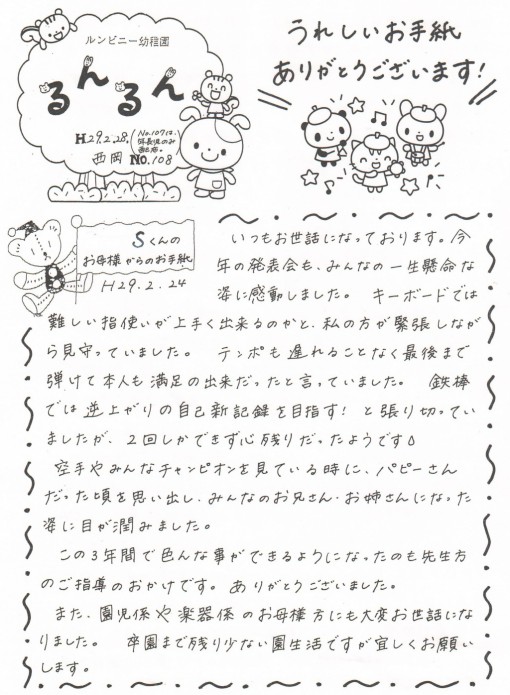 ルンビニー幼稚園
るんるん
H29.2.28.
No.107は、
年長児のみ
配布。
西岡 No.108
うれしいお手紙
ありがとうございます!
Sくんの
お母様からのお手紙
H29.2.24
いつもお世話になっております。今
年の発表会も、みんなの一生懸命な
姿に感動しました。 キーボードでは
難しい指使いが上手く出来るのかと、私の方が緊張しなが
ら見守っていました。 テンポも遅れることなく最後まで
弾けて本人も満足の出来だったと言っていました。 鉄棒
では逆上がりの自己新記録を目指す! と張り切ってい
ましたが、2回しかできず心残りだったようです
空手やみんなチャンピオンを見ている時に、パピーさん
だった頃を思い出し、みんなのお兄さん・お姉さんになった
姿に目が潤みました。
この3年間で色んな事ができるようになったのも先生方
のご指導のおかげです。 ありがとうございました。
また、園児係や楽器係のお母様方にも大変お世話にな
りました。 卒園まで残り少ない園生活ですが宜しくお願い
します。